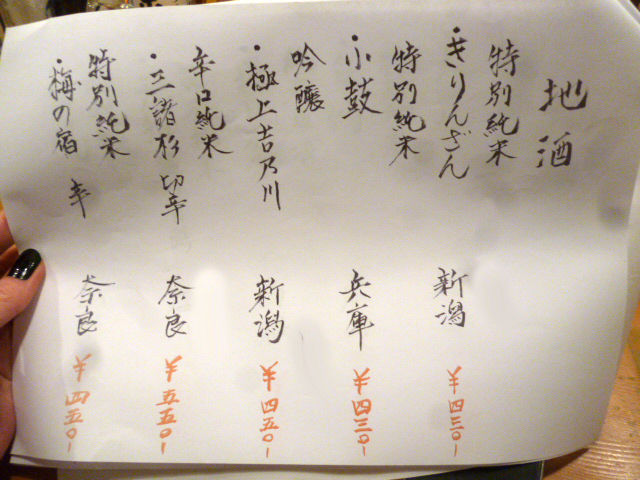 地酒
特別純米
・きりんざん 新潟 ¥四三〇-
特別純米
・小鼓 兵庫 ¥四三〇-
吟醸
・極上吉乃川 新潟 ¥四五〇-
辛口純米
・三諸杉 切辛 奈良 ¥五五〇-
特別純米
・梅の宿 辛 奈良 ¥四五〇-